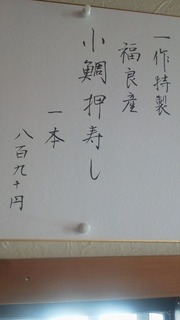 一作特製
福良産
小鯛押寿し
一本
八百九十円